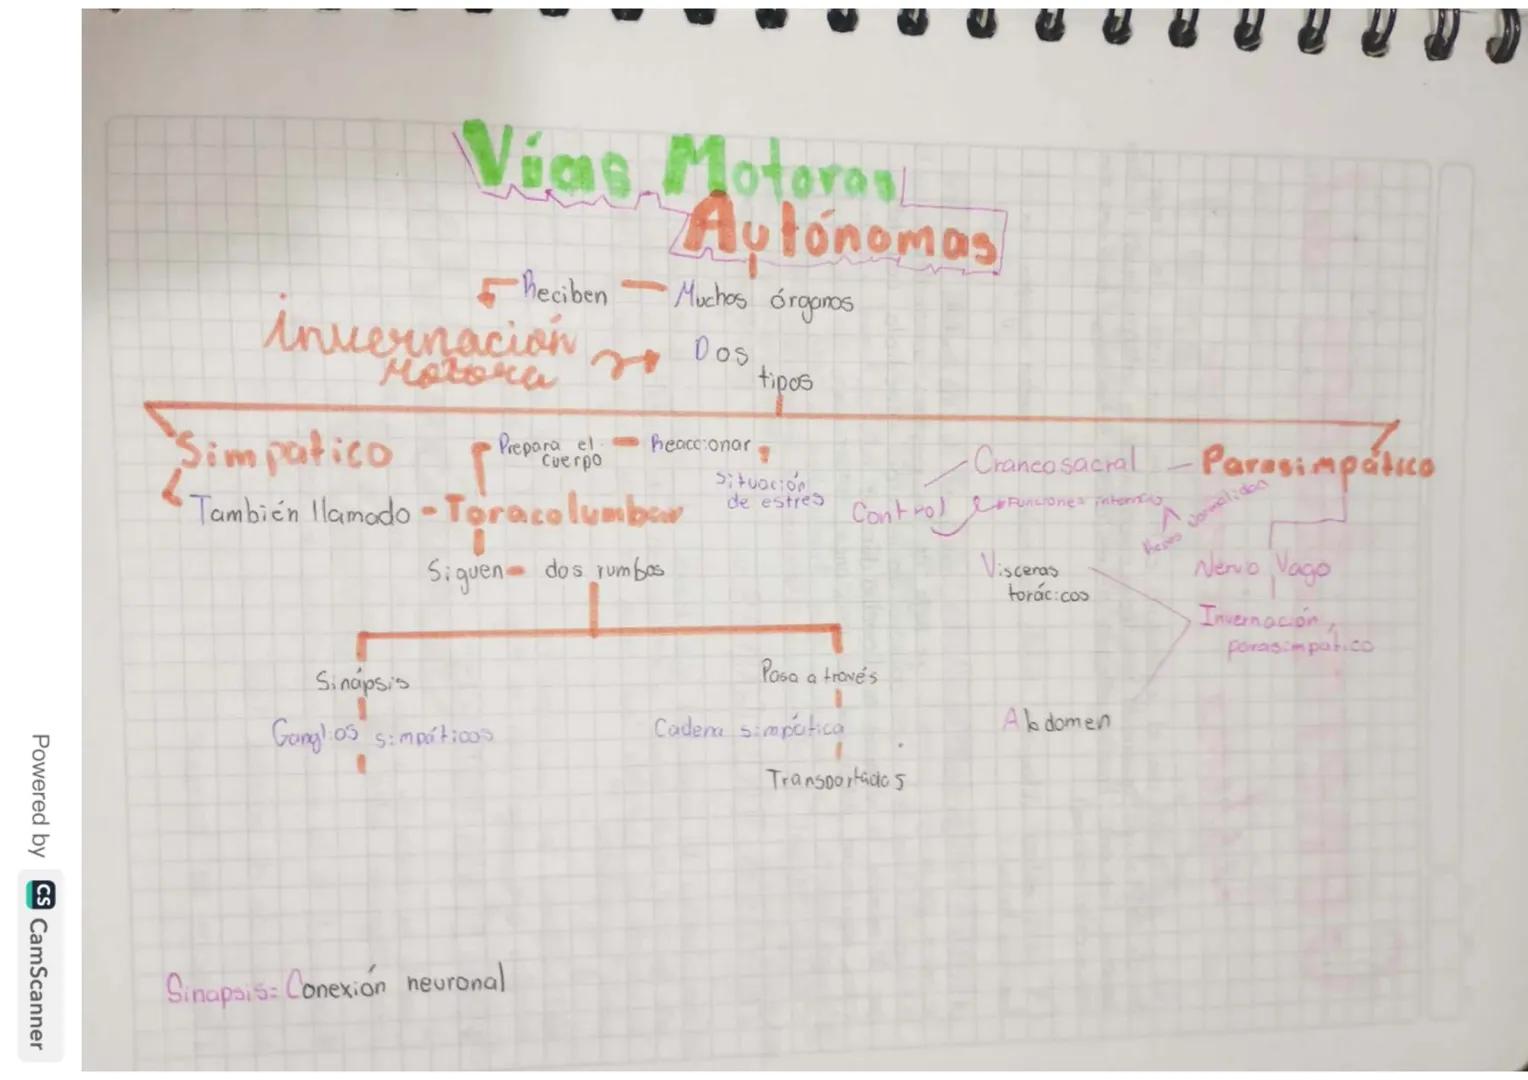 Vías Motoras
Autónomas
Reciben - Muchos órganos
invernación
Motora
Dos
tipos
Simpatico
Prepara el
cuerpo
Reaccionar
Situación
de estres
También llamado - Toracolumbar
Siguen - dos rumbos
Sinápsis
Ganglios simpáticos
Pasa a través
Cadena simpática
Transportados
Craneosacral - Parasimpático
Control
Funciones internas
normalidad
Nervio Vago
Invernación
parasimpatico
Visceras
torácicos
Abdomen
Sinapsis= Conexión neuronal
Powered by CS CamScanner